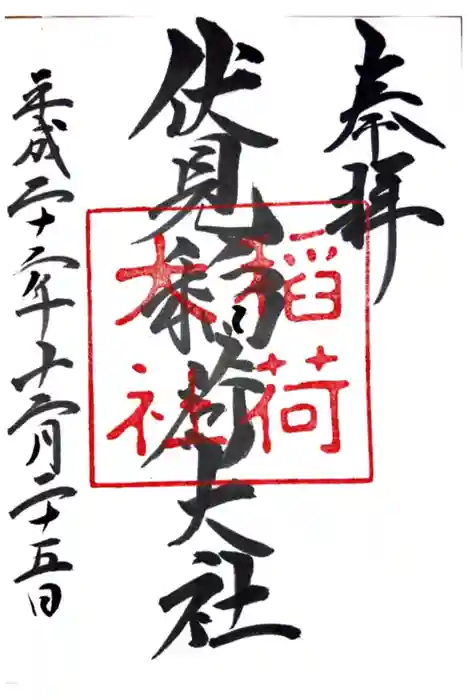 奉拝
伏見稲荷大社
稲荷
大社
平成二十二年十二月二十五日